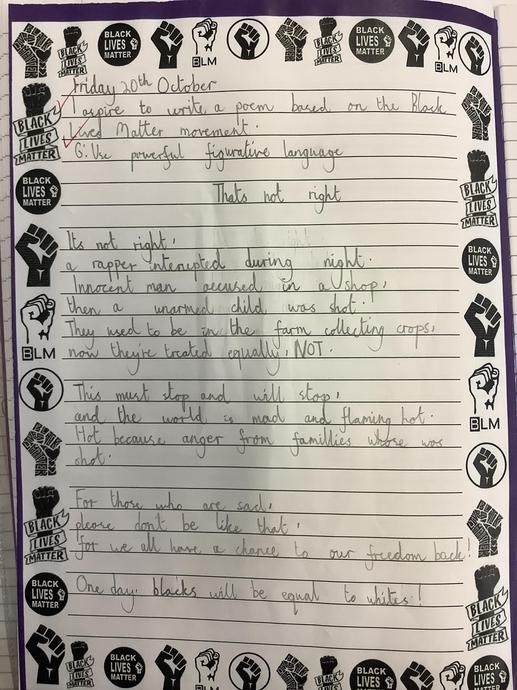 BLACK LIVES MATTER
BLACK LIVES MATTER
BLM
BLACK LIVES MATTER
BLACK LIVES MATTER
BLM
Friday 20th October
I aspire to write a poem based on the Black
Lives Matter movement.
G: Use powerful figurative language
BLACK LIVES MATTER
BLACK LIVES MATTER
BLACK LIVES MATTER
Thats not right
BLACK LIVES MATTER
Its not right,
a rapper interupted during night.
Innocent man accused in a shop,
then a unarmed child, was shot.
They used to be in the farm collecting crops,
now they're treated equally, NOT.
BLM
This must stop and will stop,
and the world is mad and flaming hot.
BLM
Hot because anger from famillies whose was
shot.
For those who are sad,
please don't be like that,
for we all have a chance to our freedom back!
BLACK LIVES MATTER
One day, blacks will be equal to whites!
BLACK LIVES MATTER
BLACK LIVES MATTER
BLACK LIVES MATTER
BLACK LIVES MATTER
BLM
BLACK LIVES MATTER
BLACK LIVES MATTER
BLM
BLACK LIVES MATTER